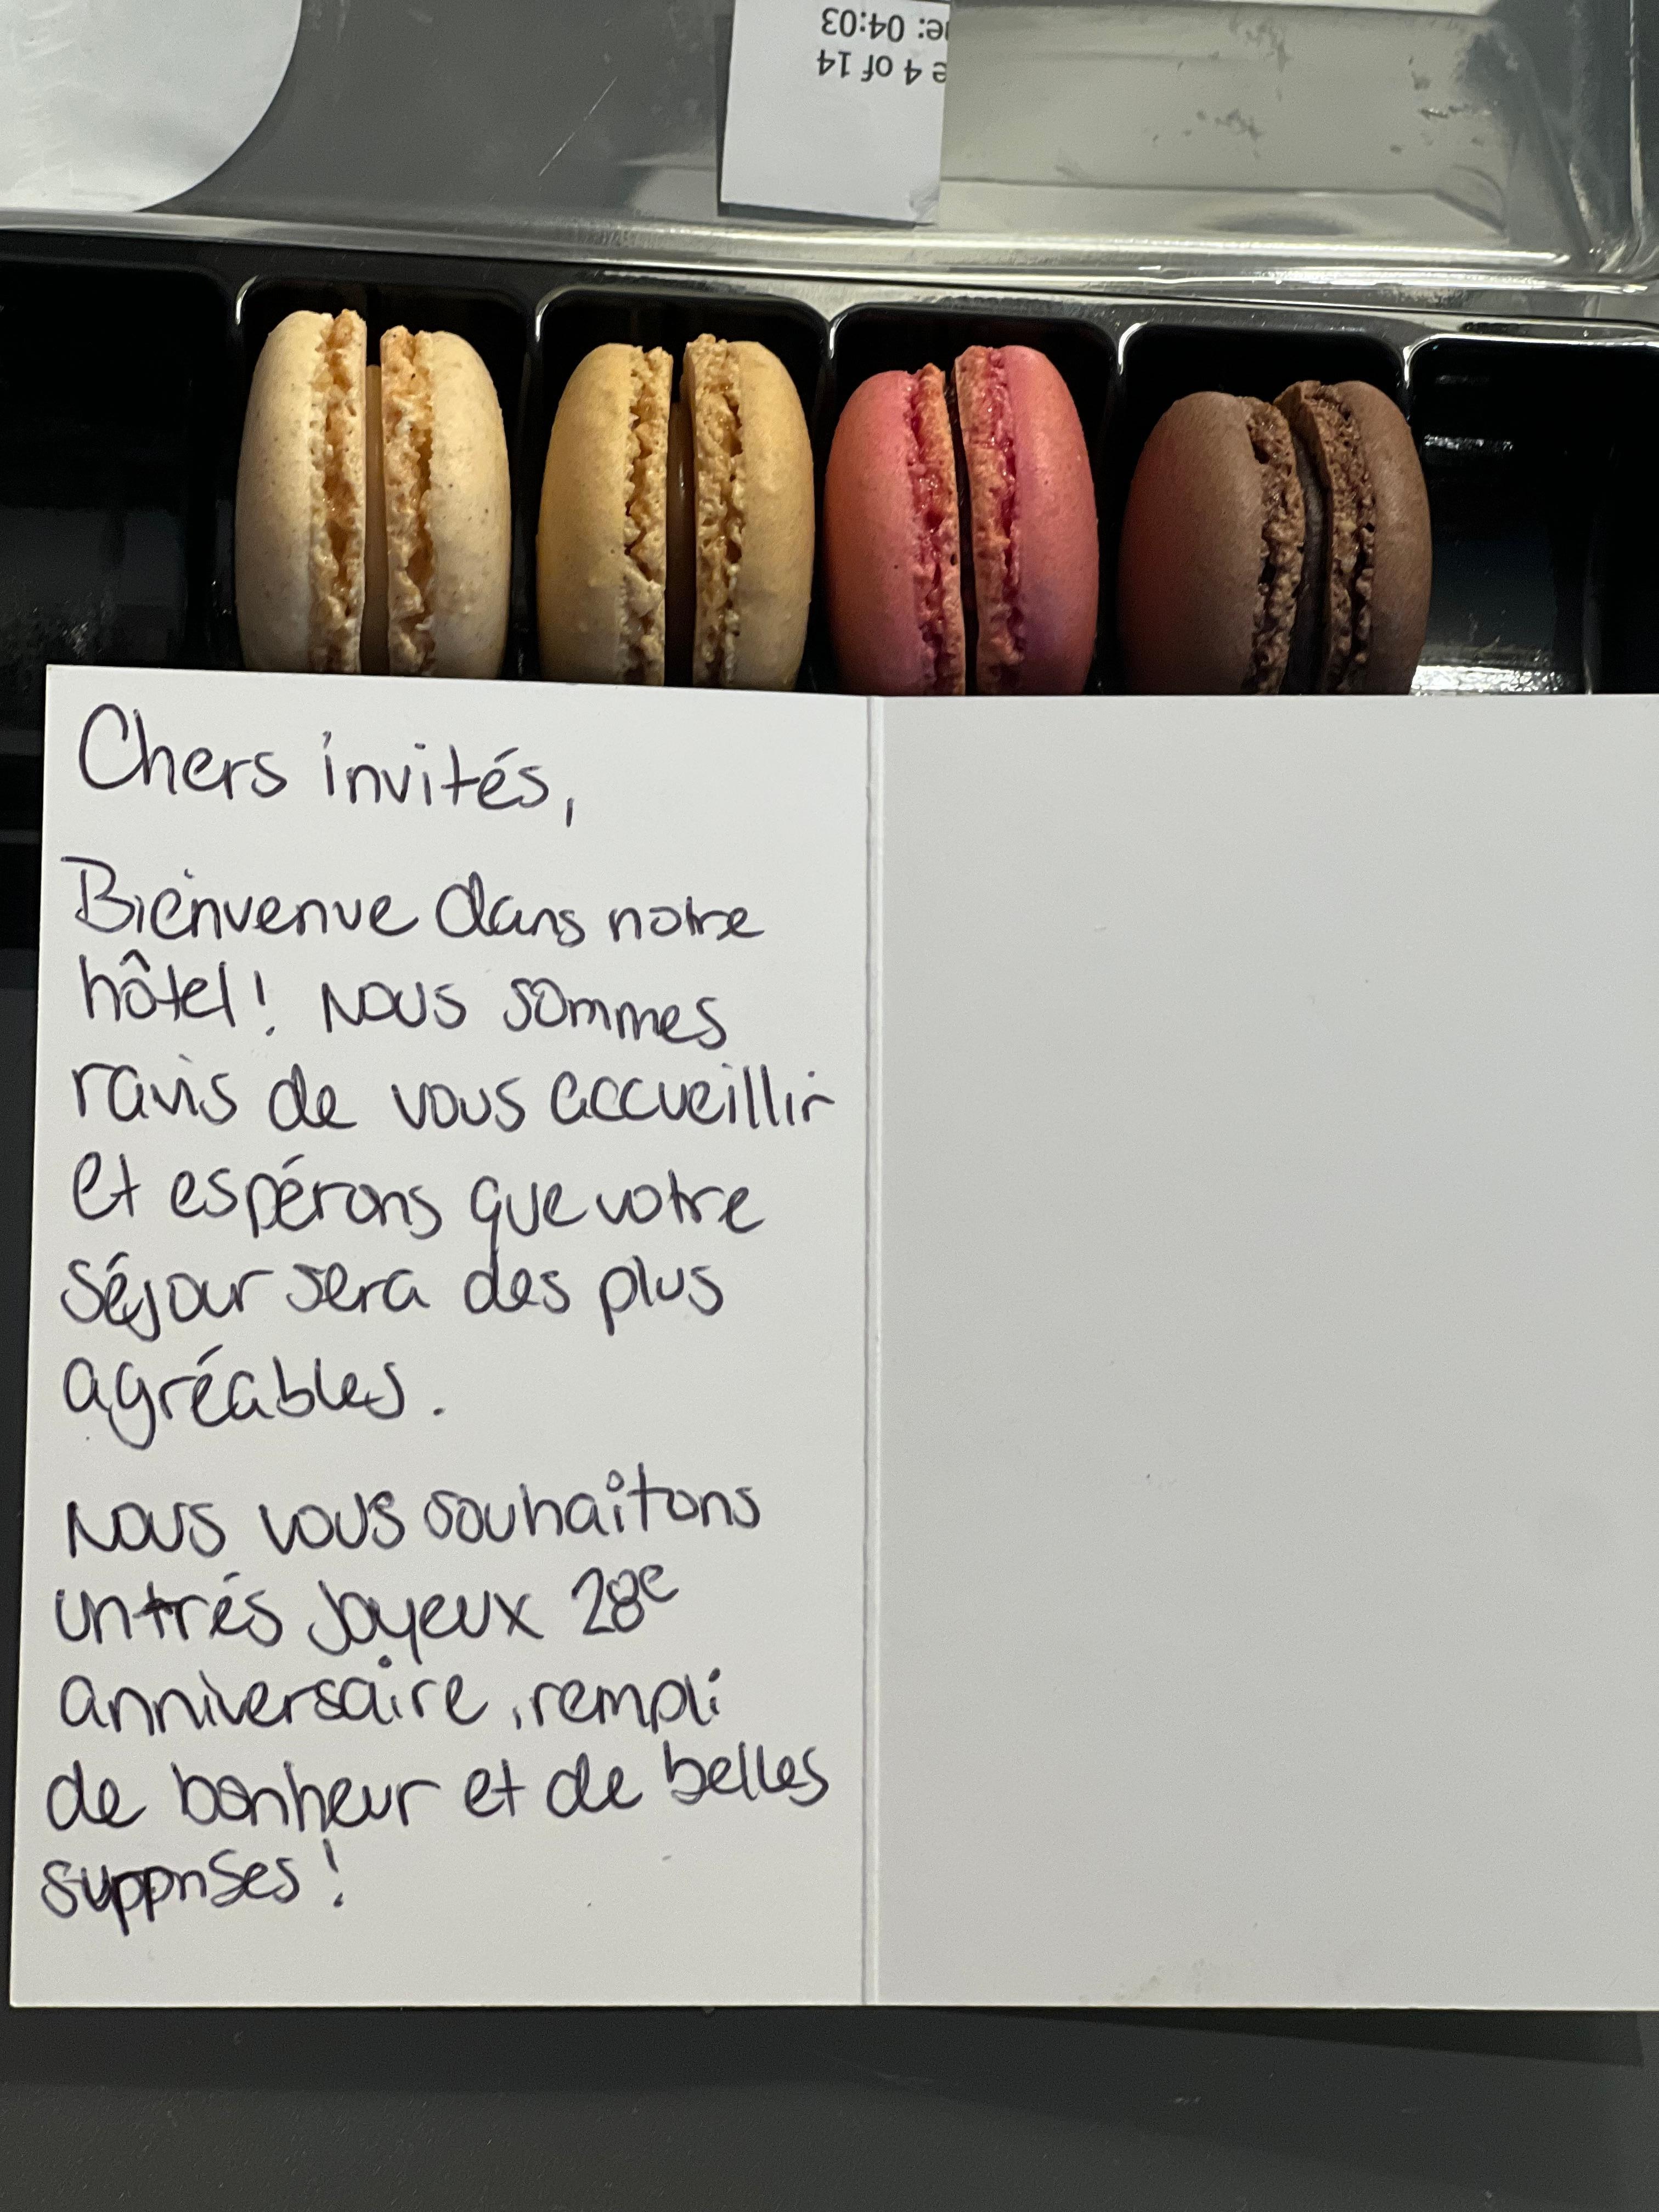 e: 04:03
e 4 of 14
Chers invités,
Bienvenue dans notre
hôtel! Nous sommes
ravis de vous accueillir
et espérons que votre
séjour sera des plus
agréables.
Nous vous souhaitons
un très joyeux 28e
anniversaire, rempli
de bonheur et de belles
supprises!